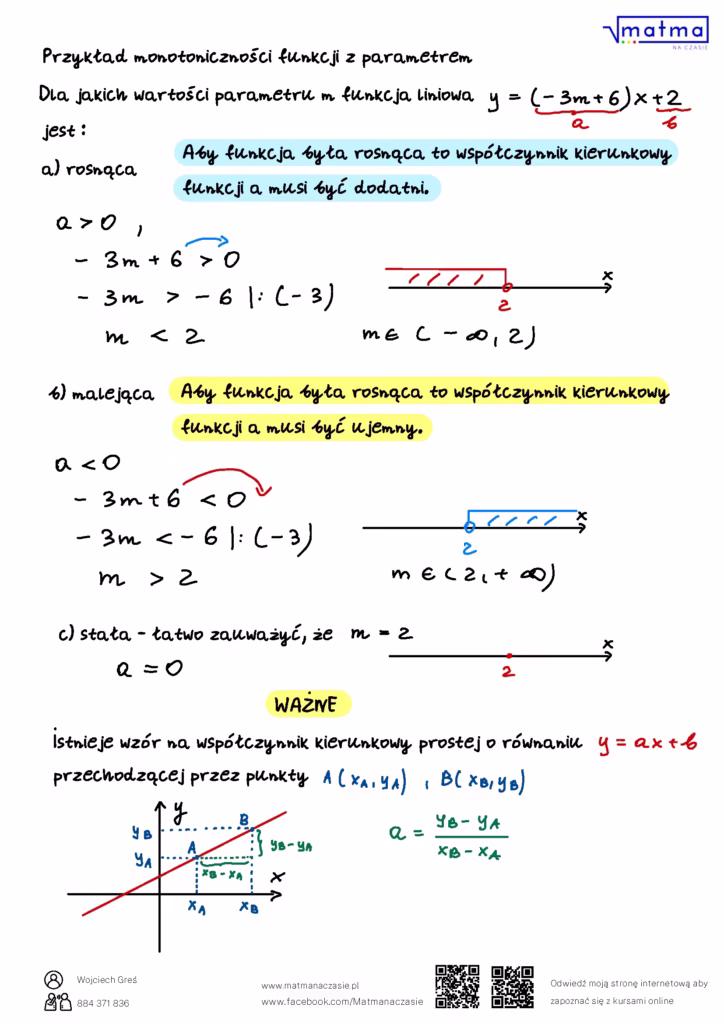 √matma
NA CZASIE
Przykład monotoniczności funkcji z parametrem
Dla jakich wartości parametru m funkcja liniowa y = (-3m+6)x+2
a b
jest:
a) rosnąca
Aby funkcja była rosnąca to współczynnik kierunkowy
funkcji a musi być dodatni.
a > 0 ,
- 3m + 6 > 0
- 3m > - 6 |: (-3)
m < 2
x
2
m ∈ ( - ∞, 2)
b) malejąca
Aby funkcja była rosnąca to współczynnik kierunkowy
funkcji a musi być ujemny.
a < 0
- 3m + 6 < 0
- 3m < - 6 |: (-3)
m > 2
x
2
m ∈ ( 2, + ∞)
c) stała - łatwo zauważyć, że m = 2
a = 0
x
2
WAŻNE
istnieje wzór na współczynnik kierunkowy prostej o równaniu y = ax+b
przechodzącej przez punkty A(xA, yA) , B(xB, yB)
y
yB B
yA A yB - yA
xB - xA x
xA xB
a = yB - yA
xB - xA
Wojciech Greś
884 371 836
www.matmanaczasie.pl
www.facebook.com/Matmanaczasie
Odwiedź moją stronę internetową aby
zapoznać się z kursami online